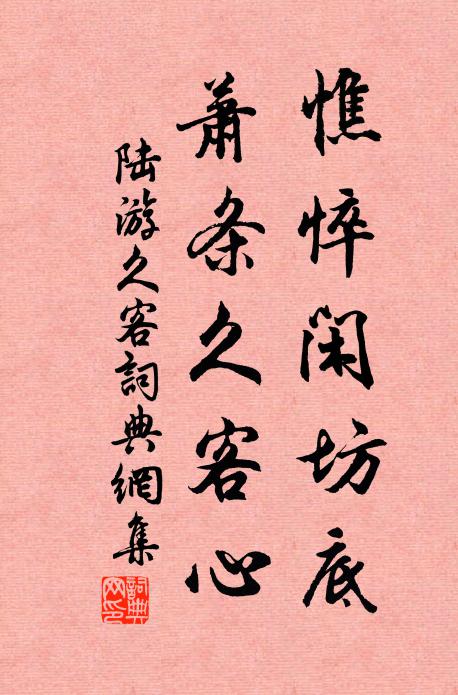 憔悴闲坊底
萧条久客心
陆游久客詞典網集
詞典网印